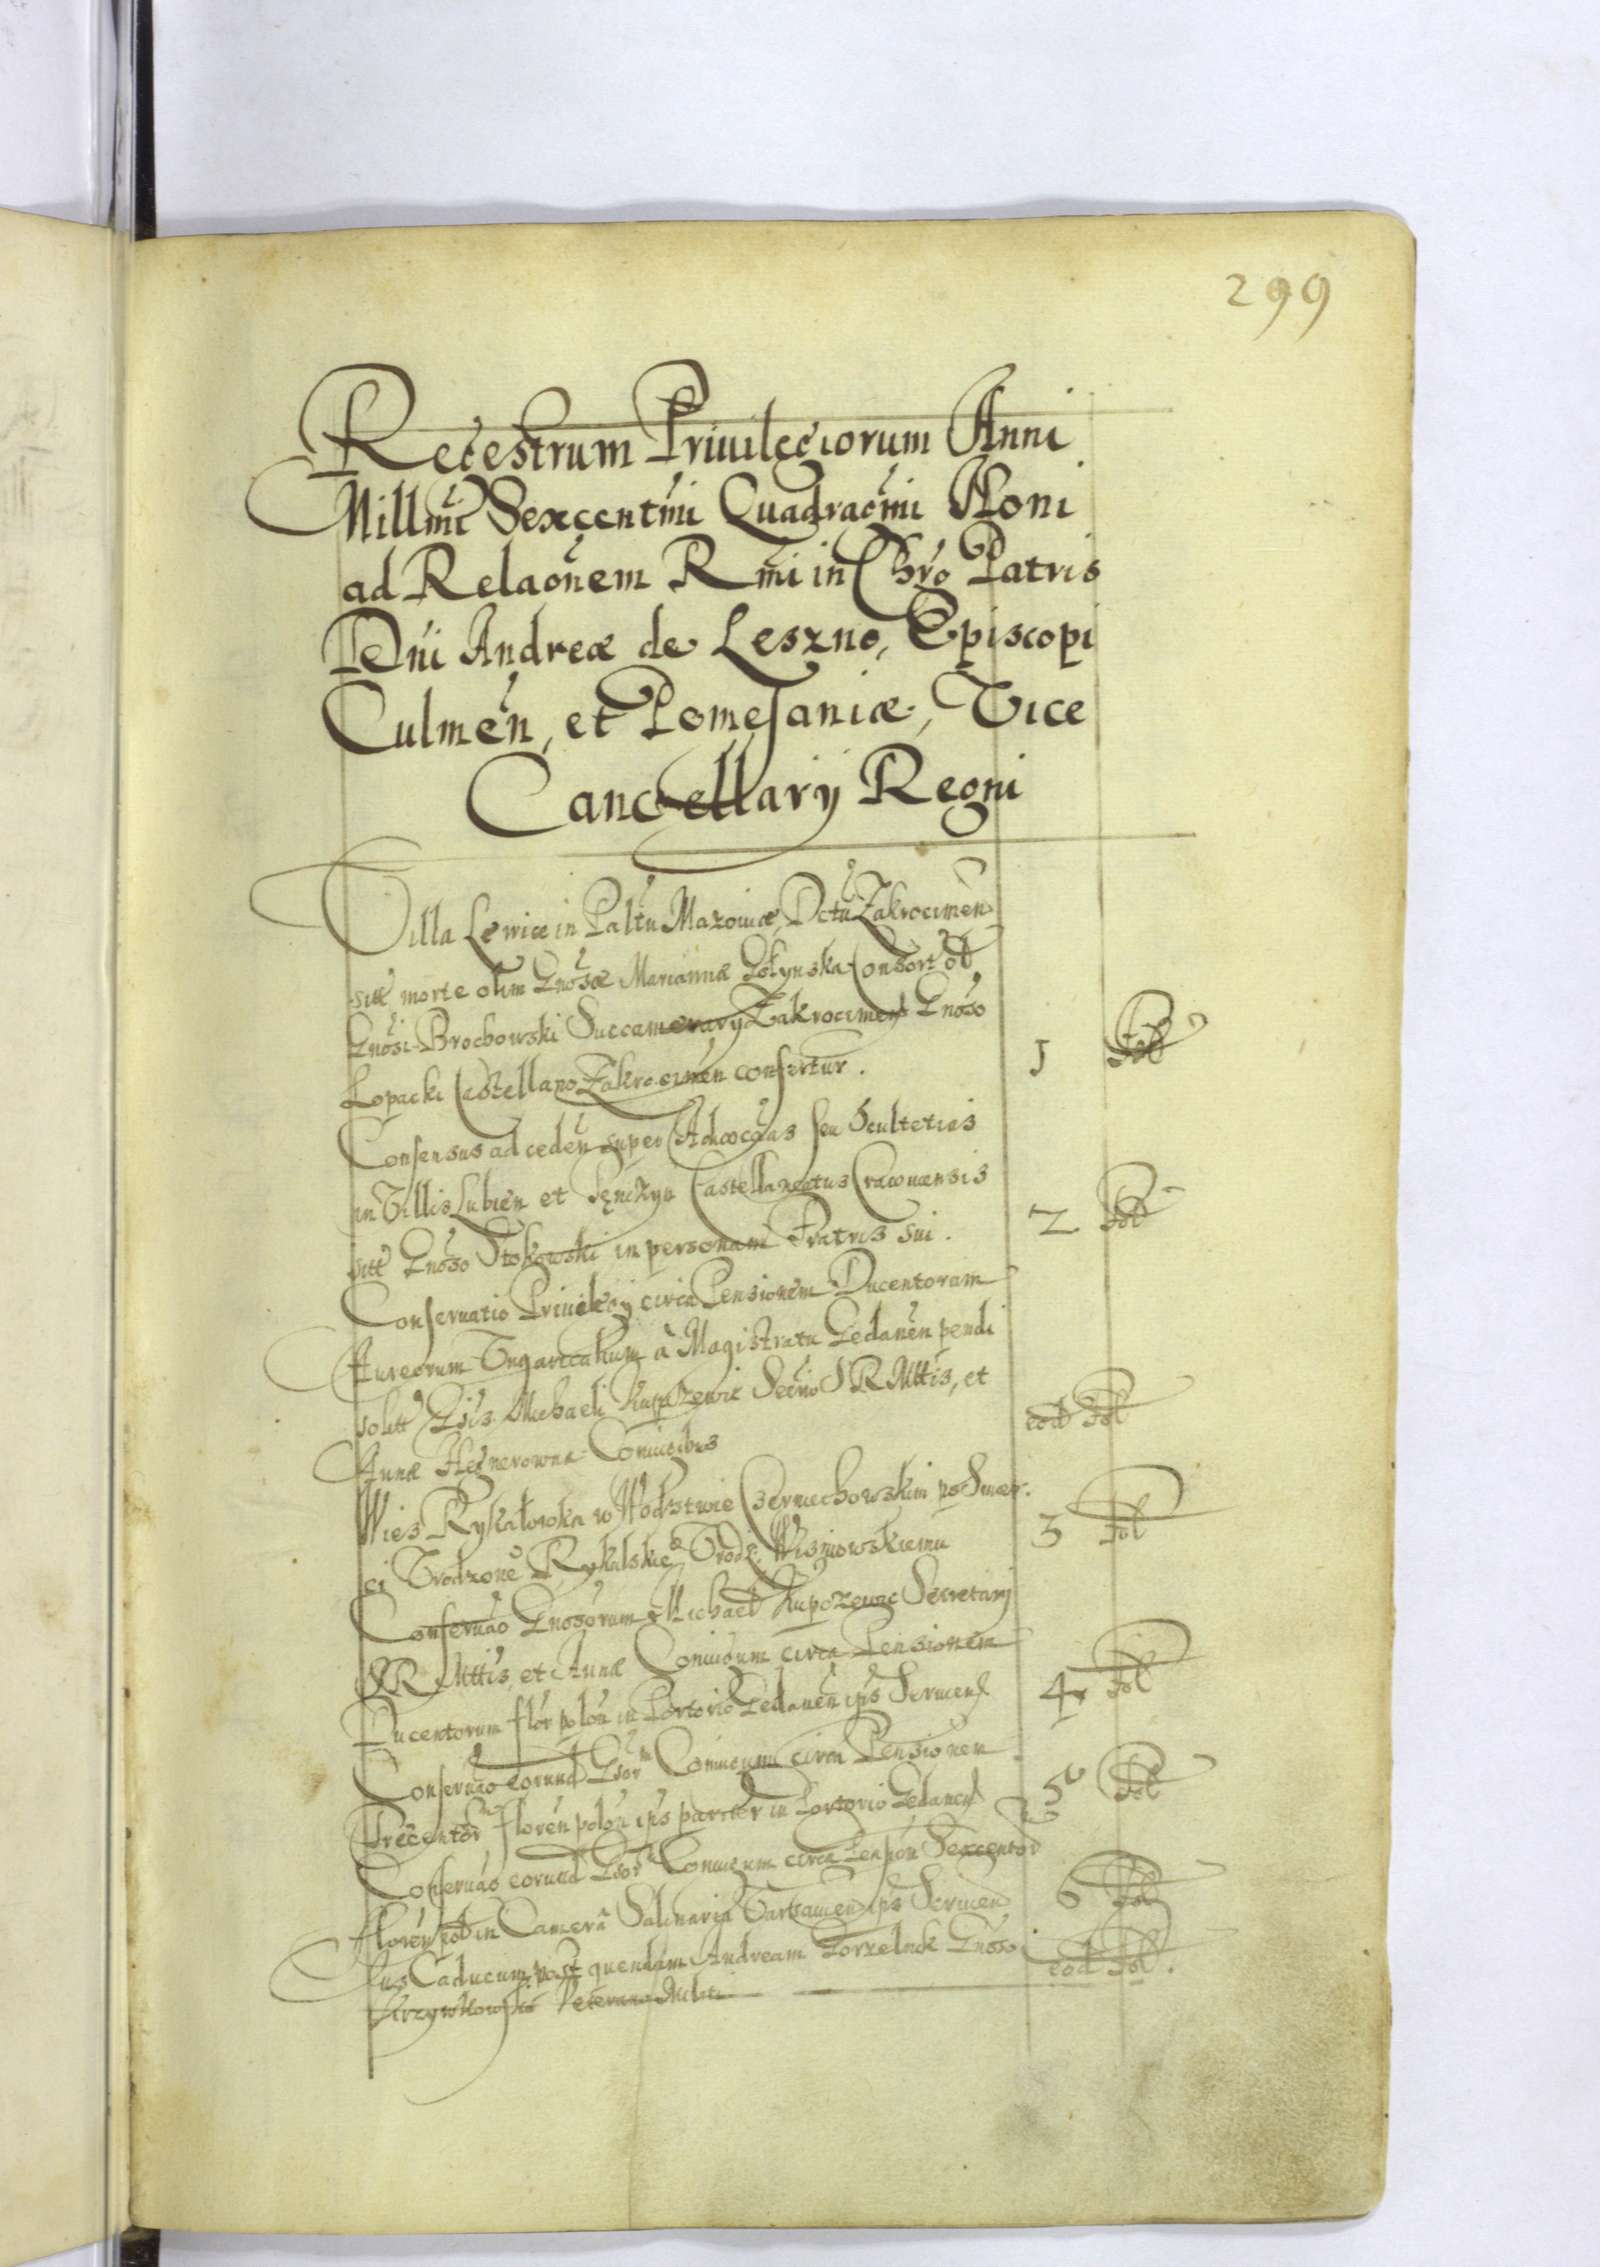 299
Regestrum Privilegiorum Anni
Millmi Sexcentmi Quadragmi Noni
ad Relaonem Rmi in Chro Patris
Dni Andreæ de Leszno, Episcopi
Culmen, et Pomesaniæ, Vice
Cancellarij Regni
Villa Lewice in Paltu Mazoviæ, Dctu Zakrocimen
sitt morte olim Gnosæ Mariannæ Golynska Consort
Gnosi Brochowski Succamerary Zakrocimen Gnoso
Lopacki Castellano Zakrocimen confertur. 1 Fol
Consensus ad ceden super Advocas seu Scultetias
in Villis Lubien et Castellaneatus Cracoviensis
sitt Gnoso Stokowski in personam Fratris sui. 2 Fol
Conservatio Privilegij circa Pensionem Ducentorum
Aureorum Ungaricalium à Magistratu Gedanen pendi
solitt Gsis Michaeli Kupczewic Secrio SRMttis, et
Annæ Conjugibus eod Fol
Wies Rykałowka w Wodztwie Czernichowskim po Smier:
ci Urodzone Rykalskie Urodz: Wisniowskiemu 3 Fol
Conservao Gnosorum Michael Kupczewic Secretarij
SRMttis, et Annæ Conjugum circa Pensionem
Ducentorum flor polon in Portorio Gedanen ips Servien 4 Fol
Conservao eorund Gsor Conjugum circa Pensionem
Trecentor floren polon ips pariter in Portorio Gedanen 5 Fol
Conservao eorund Gsor Conjugum circa Pension Sexcentor
floren pol in Camera Salinaria ips Servien 6 Fol
Ius Caducum post quendam Andream Gnoso
Veterano Militi eod Fol.